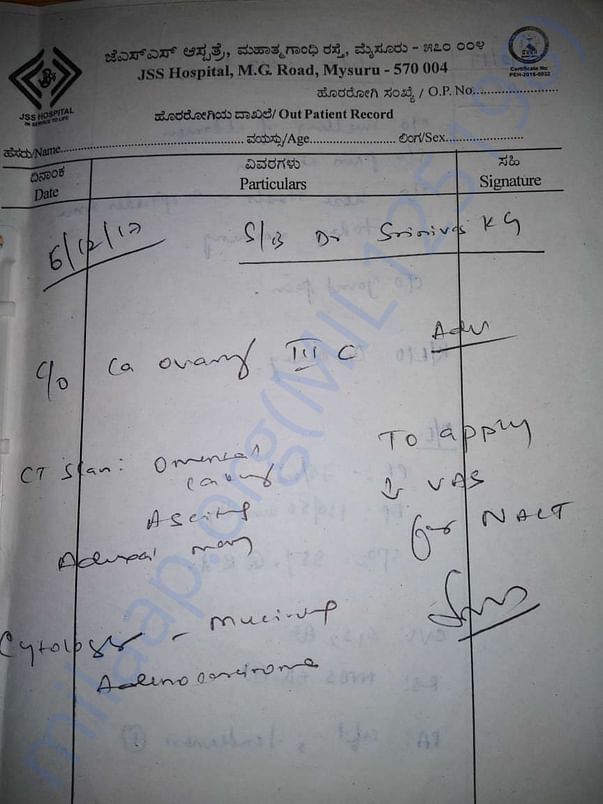 ಜೆಎಸ್ಎಸ್ ಆಸ್ಪತ್ರೆ, ಮಹಾತ್ಮಗಾಂಧಿ ರಸ್ತೆ, ಮೈಸೂರು - ೫೭೦ ೦೦೪
JSS Hospital, M.G. Road, Mysuru - 570 004
JSS HOSPITAL
Certificate No
PEH-2016-0032
ಹೊರರೋಗಿ ಸಂಖ್ಯೆ / O.P. No.
ಹೊರರೋಗಿಯ ದಾಖಲೆ/ Out Patient Record
ಹೆಸರು/Name ವಯಸ್ಸು/Age ಲಿಂಗ/Sex
ದಿನಾಂಕ ವಿವರಗಳು ಸಹಿ
Date Particulars Signature
6/12/17 S/B Dr Srinivas K G
c/o Ca ovary III C Adv
CT Scan: Omental caking To apply
Ascites ↓ VAS
Adnexal mass for NACT
Cytology - Mucinous
Adenocarcinoma
milaap.org(MIL125193)